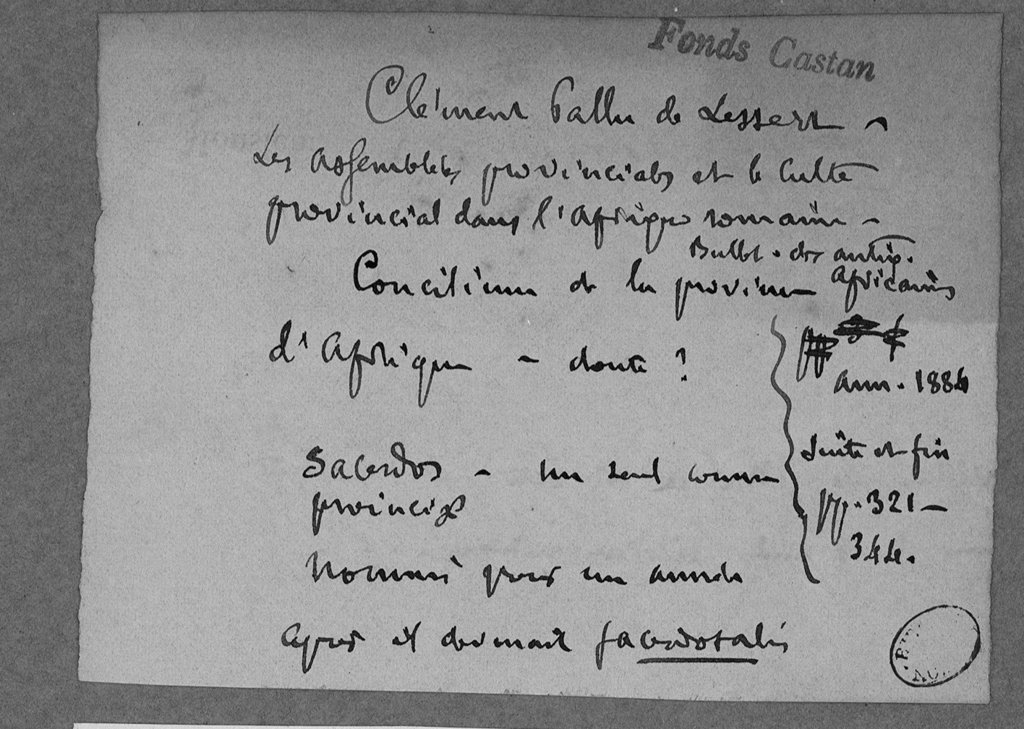 Fonds Castan
Clément Pallu de Lessert -
Les assemblées provinciales et le culte
provincial dans l'Afrique romaine -
Bullet. des antiq.
Africaines
Concilium de la province
d'Afrique - doute ?
ann. 1884
Suite et fin
pp. 321-
344.
Sacerdos - un seul comme
provinciae
Nommé pour un année
après il devenait sacerdotalis